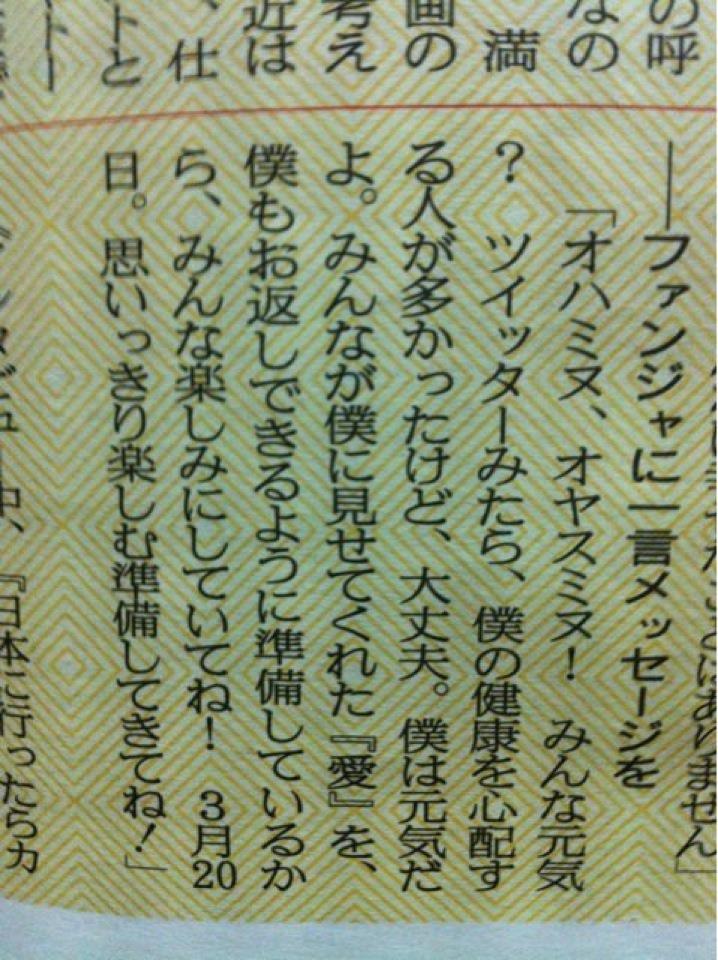 の呼
なの
満
画の
考え
近は
、仕
トと
とはありません」
――ファンジャに一言メッセージを
「オハミヌ、オヤスミヌ！　みんな元気
？　ツイッターみたら、僕の健康を心配す
る人が多かったけど、大丈夫。僕は元気だ
よ。みんなが僕に見せてくれた『愛』を、
僕もお返しできるように準備しているか
ら、みんな楽しみにしていてね！　3月20
日。思いっきり楽しむ準備してきてね！」
ビュー中、『日本に行ったらカ